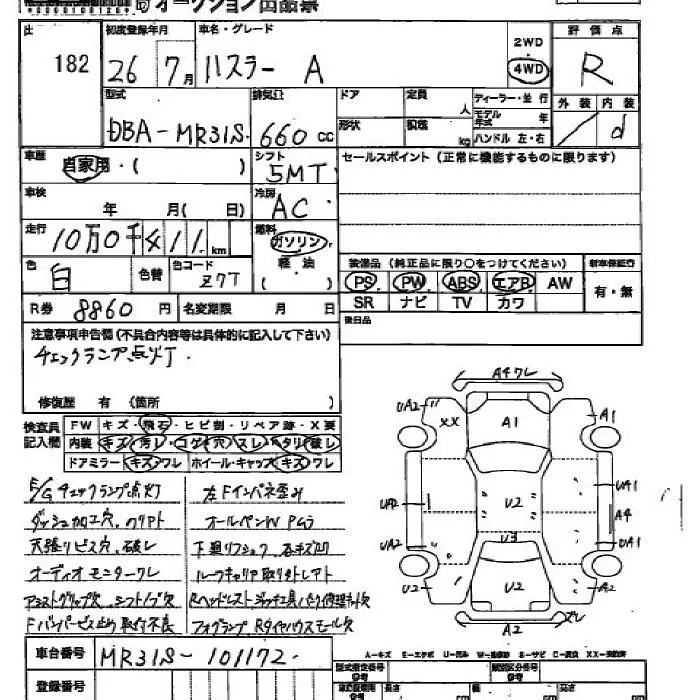 オークション出品票
出 182
初度登録年月 26年 7月
車名・グレード ハスラー A
2WD
4WD
評価点 R
外装 内装 d
型式 DBA-MR31S
排気量 660 cc
ドア 定員 人
形状 積載 kg
ディーラー・並行
モデル年式 年
ハンドル 左・右
車歴 自家用・( )
シフト 5MT
セールスポイント (正常に機能するものに限ります)
車検 年 月( 日)
冷房 AC
走行 10万0千411 km
燃料 ガソリン・軽・油 ( )
色 白 色替 色コード Z7T
装備品 (純正品に限り○をつけてください) 新車保証書
PS PW ABS エアB AW 有・無
SR ナビ TV カワ
R券 8860円 名変期限 月 日
後日品
注意事項申告欄 (不具合内容等は具体的に記入して下さい)
チェックランプ点灯.
修復歴 有 (箇所 )
検査員記入欄
FW キズ・飛石・ヒビ割・リペア跡・X要
内装 キズ・汚レ・コゲ・穴・スレ・ヘタリ・破レ
ドアミラー キズ・ワレ ホイール・キャップ キズ・ワレ
E/Gチェックランプ点灯 左Fインパネ歪み
ダッシュ加工穴、クリアト オールペンW
天張リビス穴、破レ 下廻リフショク、
オーディオモニターワレ ルーフキャリア取リ外シアト
アシストグリップ欠、シフトノブ欠 Rヘッドレスト ジャッキ工具パンク修理キット欠
Fバンパービス止り取付不良 フォグランプ、Rタイヤハウスモール欠
A4ワレ
UA2 XX A1 A1
UA2 U2 UA1
A4
UA2 U3 UA1
U2 U2 A2
A2 ズレ
A-キズ E-エクボ U-凹み W-補修跡 S-サビ C-腐食 XX-交換済
車台番号 MR31S-101172
型式指定番号 参考 類別区分番号 参考
登録番号
長さ cm 幅 cm 高さ cm